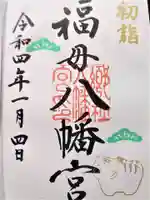 初詣
福母八幡宮
令和四年一月四日